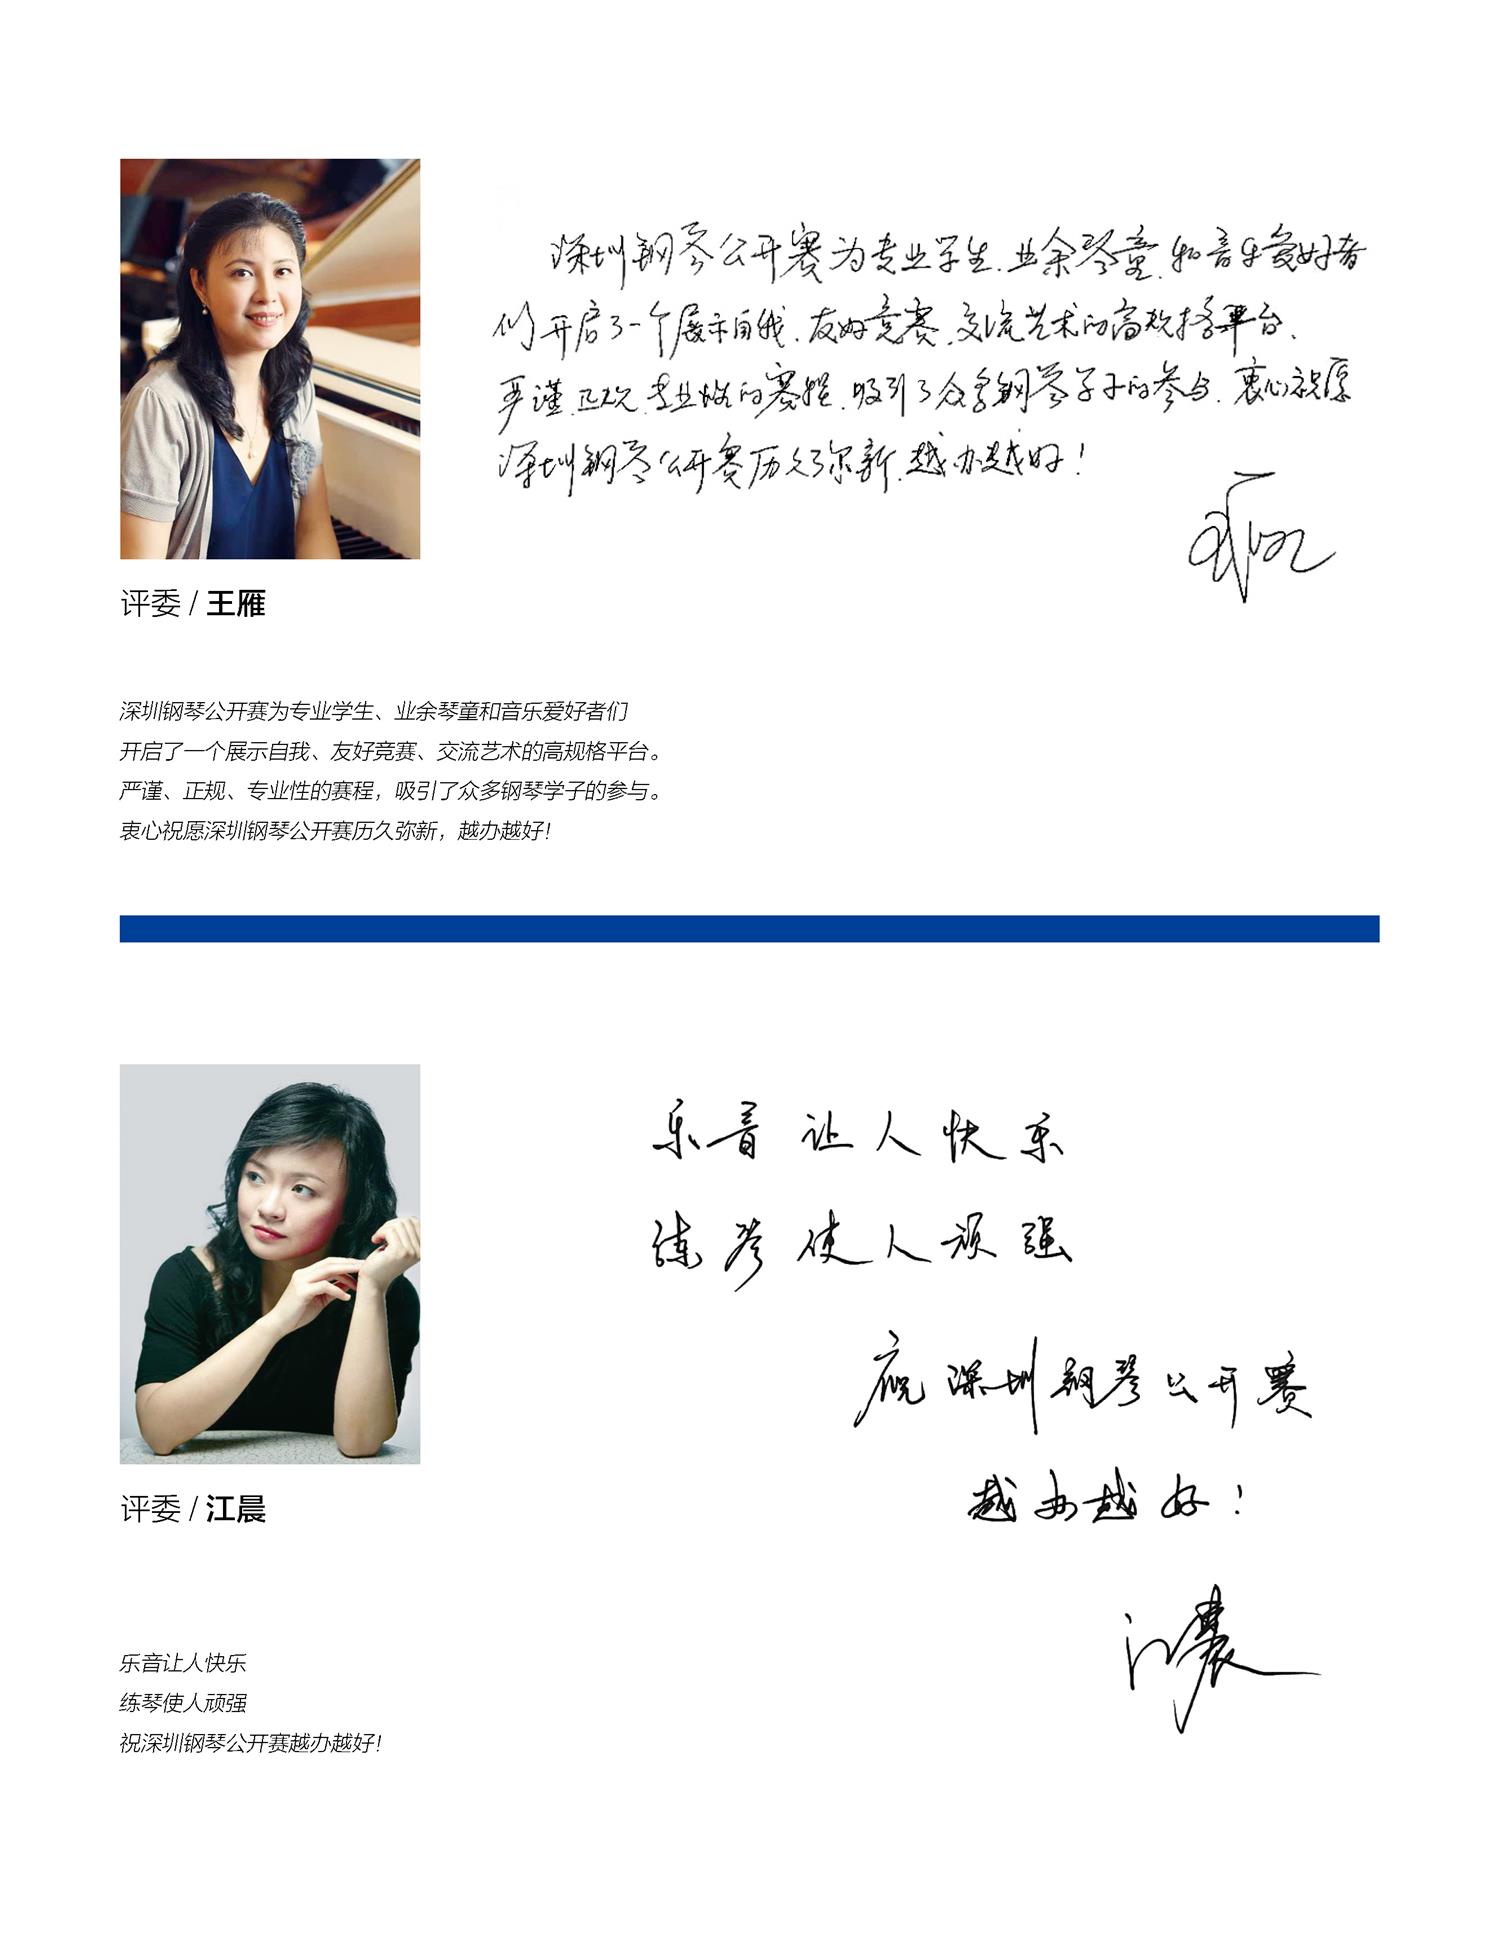 深圳钢琴公开赛为专业学生、业余琴童、和音乐爱好者
们开启了一个展示自我、友好竞赛、交流艺术的高规格平台、
严谨、正规、专业性的赛程、吸引了众多钢琴学子的参与、衷心祝愿
深圳钢琴公开赛历久弥新、越办越好！
王雁
评委 / 王雁
深圳钢琴公开赛为专业学生、业余琴童和音乐爱好者们
开启了一个展示自我、友好竞赛、交流艺术的高规格平台。
严谨、正规、专业性的赛程，吸引了众多钢琴学子的参与。
衷心祝愿深圳钢琴公开赛历久弥新，越办越好！
乐音让人快乐
练琴使人顽强
祝深圳钢琴公开赛
越办越好！
江晨
评委 / 江晨
乐音让人快乐
练琴使人顽强
祝深圳钢琴公开赛越办越好！